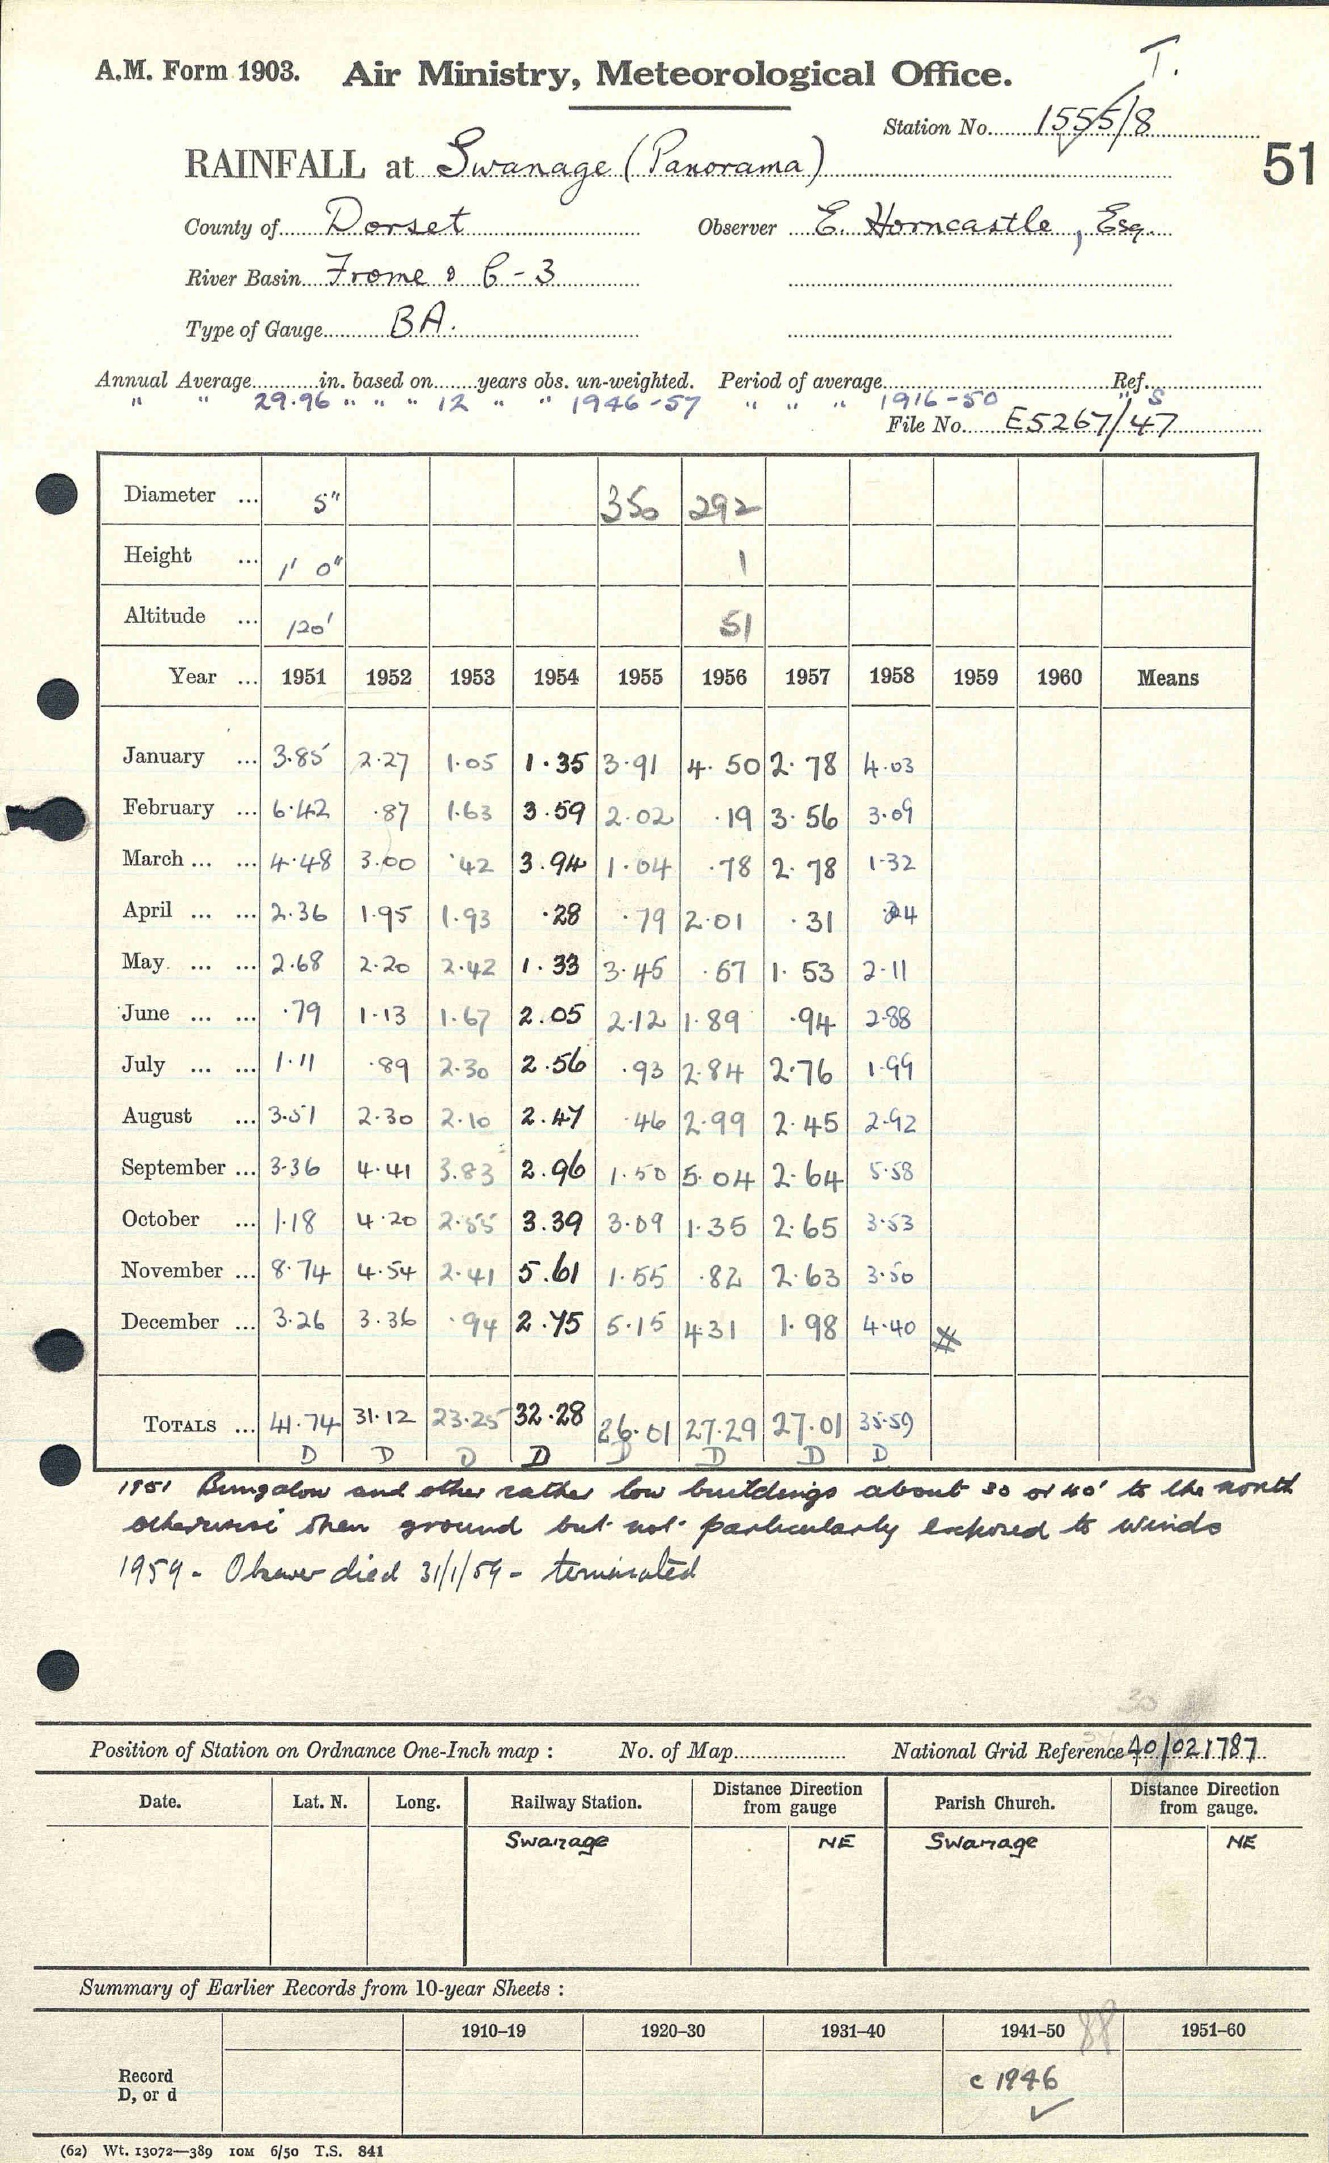 T.
A.M. Form 1903. Air Ministry, Meteorological Office.
Station No. 1555/8
51
RAINFALL at Swanage (Panorama)
County of Dorset Observer E. Horncastle, Esq.
River Basin Frome & C-3
Type of Gauge BA.
Annual Average in. based on years obs. un-weighted. Period of average Ref.
" " 29.96 " " " 12 " " 1946-57 " " " 1916-50 " S
File No. E5267/47
Diameter ... 5" 350 292
Height ... 1' 0" 1
Altitude ... 120' 51
Year ... 1951 1952 1953 1954 1955 1956 1957 1958 1959 1960 Means
January ... 3.85 2.27 1.05 1.35 3.91 4.50 2.78 4.03
February ... 6.42 .87 1.63 3.59 2.02 .19 3.56 3.09
March ... ... 4.48 3.00 .42 3.94 1.04 .78 2.78 1.32
April ... ... 2.36 1.95 1.93 .28 .79 2.01 .31 .24
May ... ... 2.68 2.20 2.42 1.33 3.45 .57 1.53 2.11
June ... ... .79 1.13 1.67 2.05 2.12 1.89 .94 2.88
July ... ... 1.11 .89 2.30 2.56 .93 2.84 2.76 1.99
August ... 3.51 2.30 2.10 2.47 .46 2.99 2.45 2.92
September ... 3.36 4.41 3.83 2.96 1.50 5.04 2.64 5.58
October ... 1.18 4.20 2.55 3.39 3.09 1.35 2.65 3.53
November ... 8.74 4.54 2.41 5.61 1.55 .82 2.63 3.50
December ... 3.26 3.36 .94 2.75 5.15 4.31 1.98 4.40
TOTALS ... 41.74 31.12 23.25 32.28 26.01 27.29 27.01 35.59
D D D D D D D D
1951 Bungalow and other rather low buildings about 30 or 40' to the north
otherwise open ground but not particularly exposed to winds
1959 - Observer died 31/1/59 - terminated
30
Position of Station on Ordnance One-Inch map : No. of Map National Grid Reference 40/021787
Date. Lat. N. Long. Railway Station. Distance from gauge Direction Parish Church. Distance from gauge. Direction
Swanage NE Swanage NE
Summary of Earlier Records from 10-year Sheets :
88
1910–19 1920–30 1931–40 1941–50 1951–60
Record
D, or d
c 1946
(62) Wt. 13072—389 10M 6/50 T.S. 841